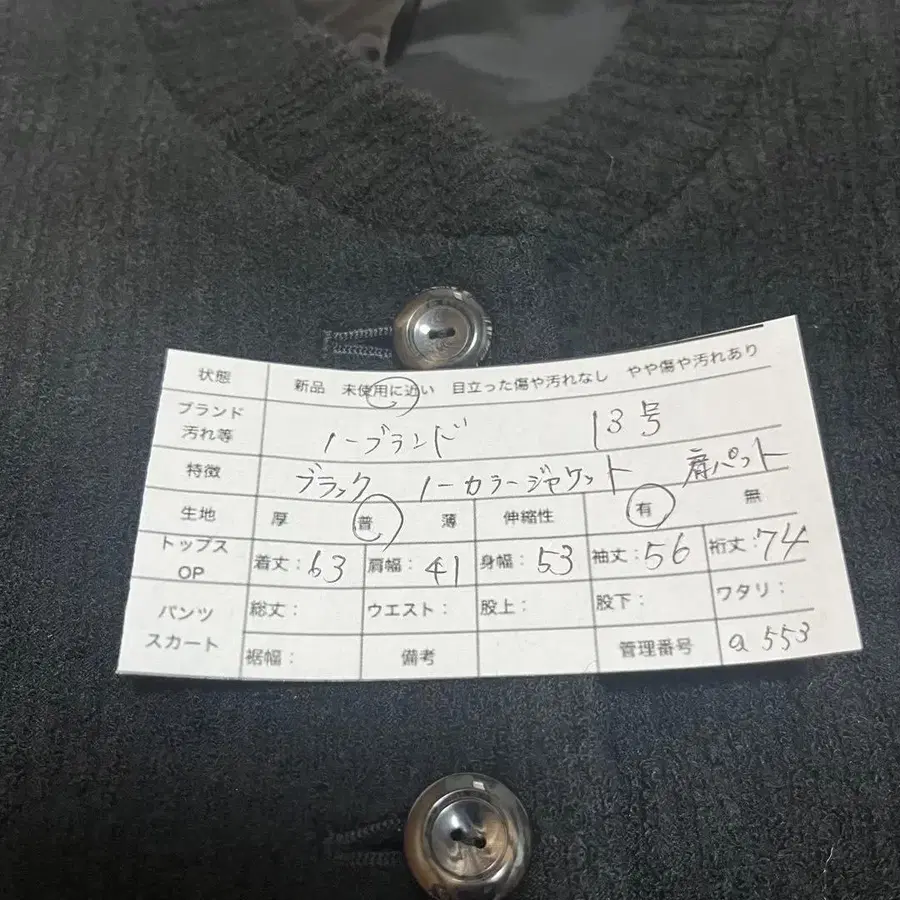 状態 新品 未使用に近い 目立った傷や汚れなし やや傷や汚れあり
ブランド 汚れ等 ノーブランド 13号
特徴 ブラック ノーカラージャケット 肩パット
生地 厚 普 薄 伸縮性 有 無
トップス OP 着丈:63 肩幅:41 身幅:53 袖丈:56 裄丈:74
パンツ スカート 総丈: ウエスト: 股上: 股下: ワタリ:
裾幅: 備考 管理番号 a553